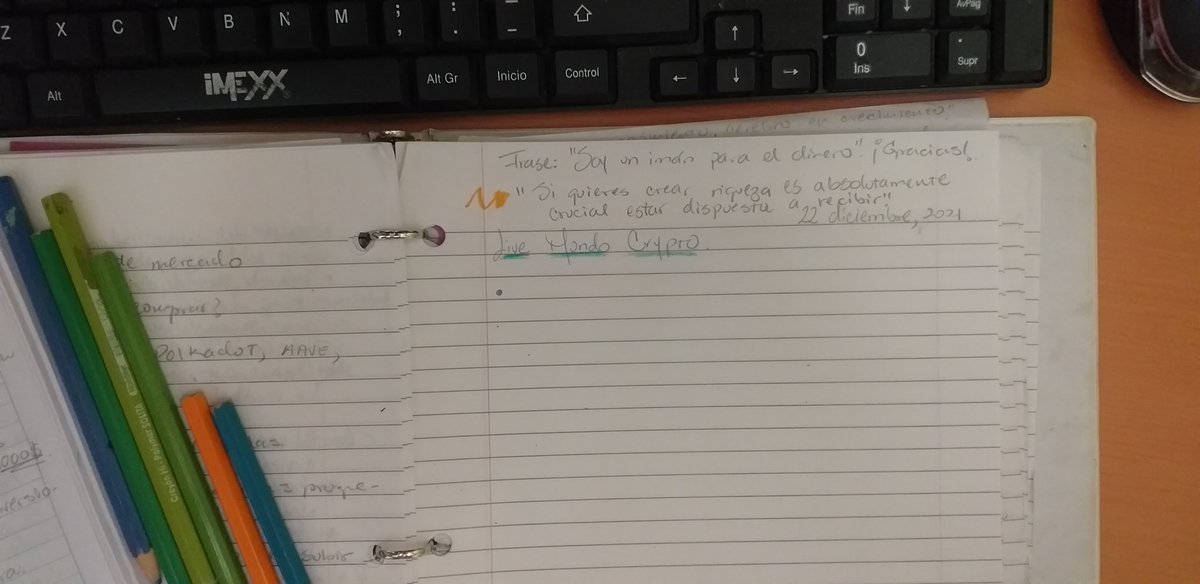 Z X C V B N M ; , : . _ -
Fin ↓ AvPág
Alt iMEXX Alt Gr Inicio Control ← ↑ ↓ → 0 Ins . Supr
cerebro en crecimiento"
Frase: "Soy un imán para el dinero". ¡Gracias!
"Si quieres crear riqueza es absolutamente
crucial estar dispuesta a recibir".
22 diciembre, 2021
Live Mondo Crypto.
de mercado
comprar?
Polkadot, AAVE,
progre-
subir